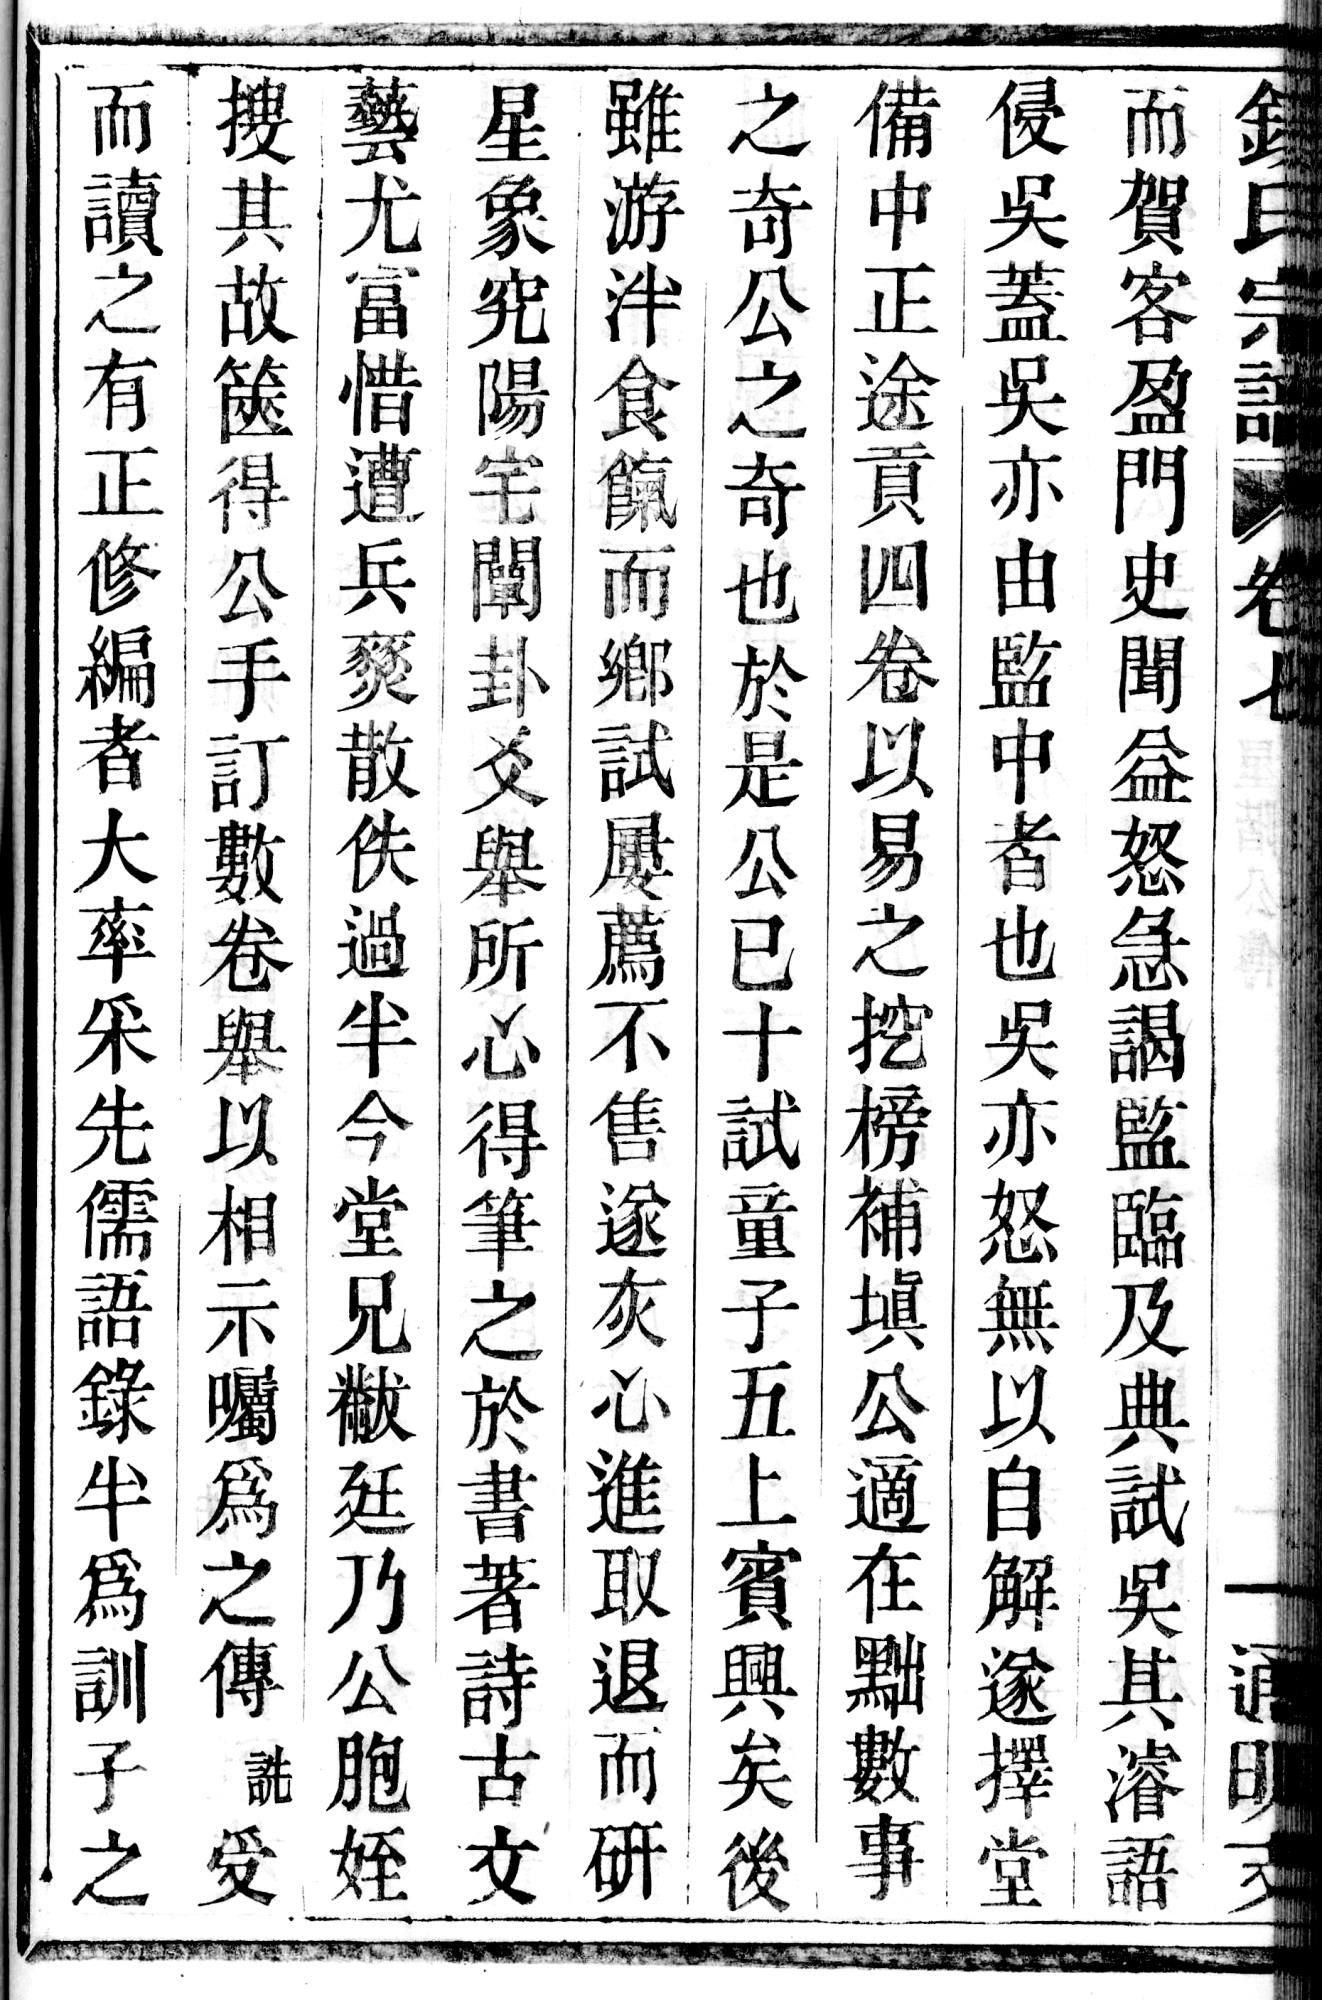 氏宗譜 卷七 一
而賀客盈門史聞益怒急謁監臨及典試吳其濬語
侵吳蓋吳亦由監中者也吳亦怒無以自解遂擇堂
備中正途貢四卷以易之挖榜補塡公適在黜數事
之奇公之奇也於是公已十試童子五上賓興矣後
雖游泮食餼而鄉試屢薦不售遂灰心進取退而研
星象究陽宅闡卦爻舉所心得筆之於書著詩古文
藝尤富惜遭兵燹散佚過半今堂兄黻廷乃公胞姪
搜其故篋得公手訂數卷舉以相示囑爲之傳 詵受
而讀之有正修編者大率采先儒語錄半爲訓子之